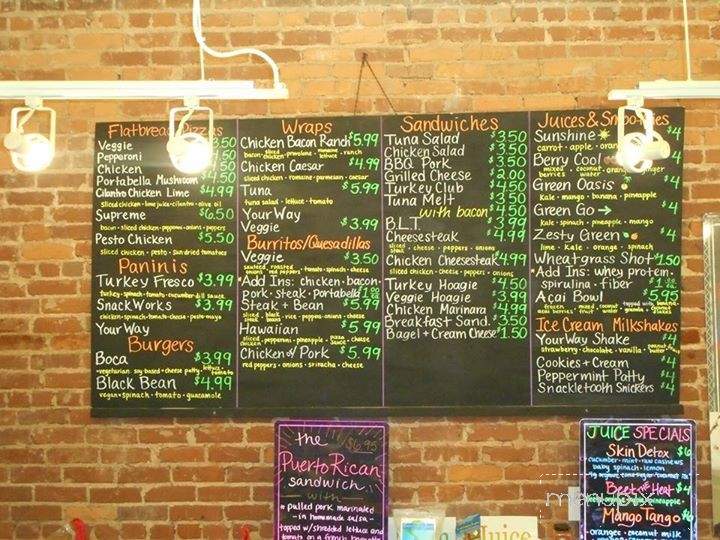 Flatbread Pizzas
Veggie 3.50
Pepperoni
Chicken
Portabella Mushroom 4.50
Cilantro Chicken Lime $4.99
sliced chicken · lime juice · cilantro · olive oil
Supreme $6.50
bacon · sliced chicken · pepperoni · onions · peppers
Pesto Chicken $5.50
sliced chicken · pesto · sun dried tomatoes
Paninis
Turkey Fresco $3.99
turkey · spinach · tomato · cucumber · dill sauce
Snack Works $3.99
chicken · spinach · tomato · cheese · pesto · mayo
Your Way
Burgers
Boca $3.99
vegetarian · soy based · cheese patty · lettuce · tomato
Black Bean $4.99
vegan · spinach · tomato · guacamole
Wraps
Chicken Bacon Ranch $5.99
bacon · sliced chicken · provolone · lettuce · ranch
Chicken Caesar $4.99
sliced chicken · romaine · parmesan · caesar
Tuna $5.99
tuna salad · lettuce · tomato
Your Way
Veggie $3.99
Burritos/Quesadillas
Veggie $3.50
sauteed onions roasted red peppers · tomato · spinach · cheese
• Add Ins: chicken · bacon ·
pork · steak · portabella
Steak + Bean 5.99
sliced steak · black beans · rice · peppers · onions · cheese
Hawaiian $5.99
sliced chicken · pepperoni · pineapple · pizza sauce · cheese
Chicken or Pork $5.99
red peppers · onions · sriracha · cheese
Sandwiches
Tuna Salad $3.50
Chicken Salad $3.50
BBQ Pork $3.50
Grilled Cheese $2.00
Turkey Club $4.50
Tuna Melt $3.50
with bacon $4.50
B.L.T. $3.99
Cheesesteak $4.99
sliced steak · cheese · peppers · onions
Chicken Cheesesteak $4.99
sliced chicken · cheese · peppers · onions
Turkey Hoagie $4.50
Veggie Hoagie $3.99
Chicken Marinara $4.99
Breakfast Sand. $3.50
Bagel + Cream Cheese $1.50
Juices & Smoothies
Sunshine $4
carrot · apple · orange
Berry Cool $4
mixed berries · coconut water · orange · ginger
Green Oasis $4
Kale · mango · banana · pineapple
Green Go → $4
Kale · spinach · pineapple · mango
Zesty Green $4
lime · Kale · orange · spinach
Wheatgrass Shot $1.50
• Add Ins: whey protein ·
spirulina · fiber $1
Acai Bowl $5.95
Ice Cream Milkshakes
Your Way Shake $4
strawberry · chocolate · vanilla · peanut butter
Cookies + Cream $4
Peppermint Patty $4
Snackletooth Snickers $4
the $6.95
Puerto Rican
sandwich
with
pulled pork marinated
in homemade salsa
topped w/ shredded lettuce and
tomato on a french baguette
JUICE SPECIALS
Skin Detox $6
cucumber · mint · raw cashews
baby spinach · lemon
Beet the Heat $4
Mango Tango $6
orange · coconut milk
menupix
Juice